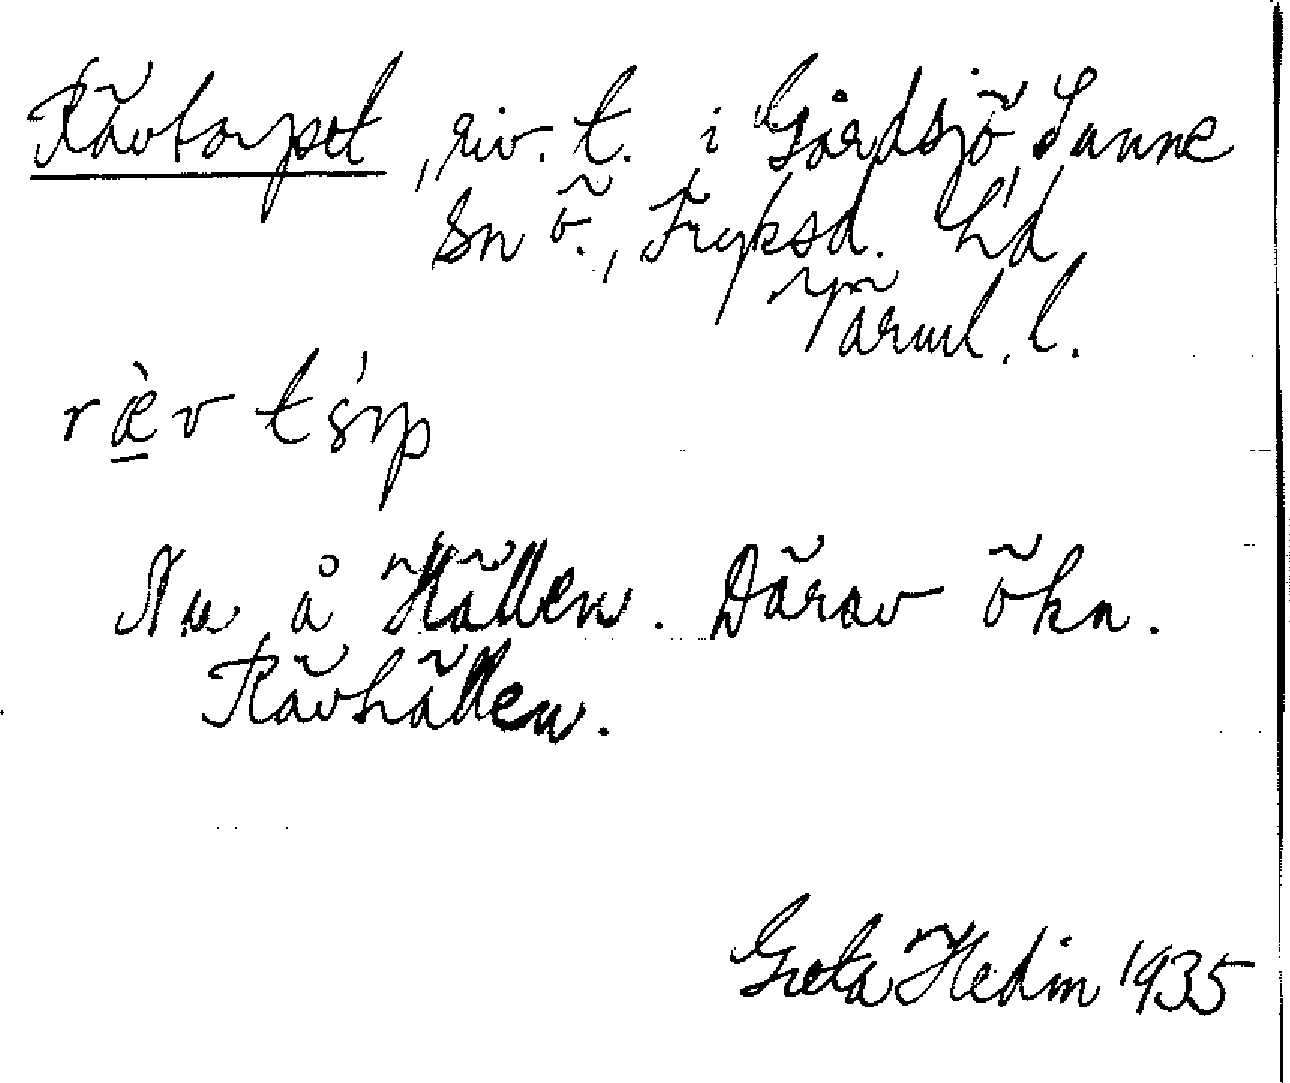 Rävtorpet, riv. t. i Gårdsjö, Sunne
Sn ö., Fryksd. hd
Värml. l.
ræ̀v
Nu å Hällen. Därav ökn.
Rävhällen.
Greta Hedin 1935